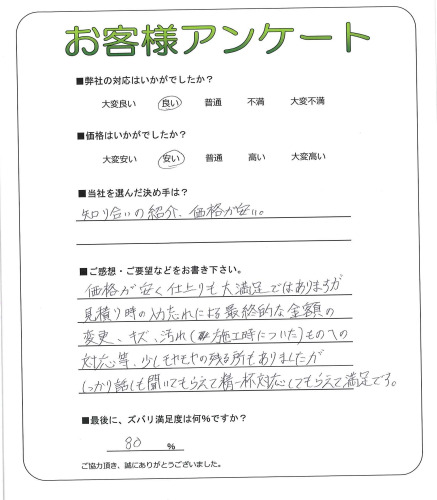 お客様アンケート
■弊社の対応はいかがでしたか？
大変良い 良い 普通 不満 大変不満
■価格はいかがでしたか？
大変安い 安い 普通 高い 大変高い
■当社を選んだ決め手は？
知り合いの紹介、価格が安い。
■ご感想・ご要望などをお書き下さい。
価格が安く仕上りも大満足ではありますが
見積り時の入力忘れによる最終的な金額の
変更、キズ、汚れ(施工時についた)ものへの
対応等、少しモヤモヤの残る所もありましたが
しっかり話しも聞いてもらえて精一杯対応してもらえて満足です。
■最後に、ズバリ満足度は何%ですか？
80 %
ご協力頂き、誠にありがとうございました。